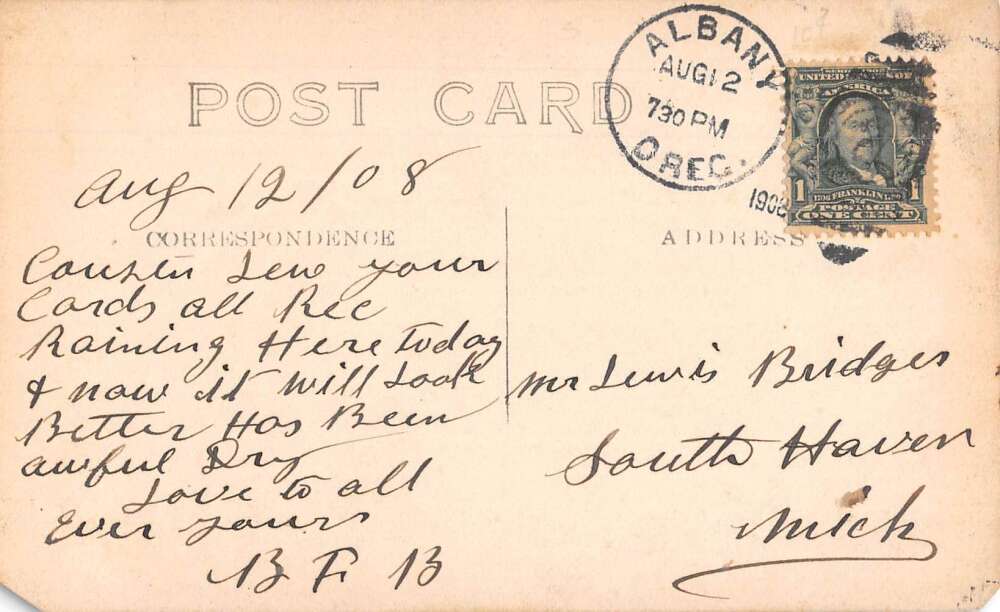 POST CARD
ALBANY
AUG 12
730 PM
OREG.
1908
SERIES 1902
UNITED STATES OF
AMERICA
1 1
1706 FRANKLIN 1790
POSTAGE
ONE CENT
Aug 12/08
CORRESPONDENCE
Couzen Lew your
Cards all Rec
Raining Here today
& now it will Look
Better Has Been
awful Dry
Love to all
Ever yours
B F B
ADDRESS
Mr Lewis Bridges
South Haven
Mich